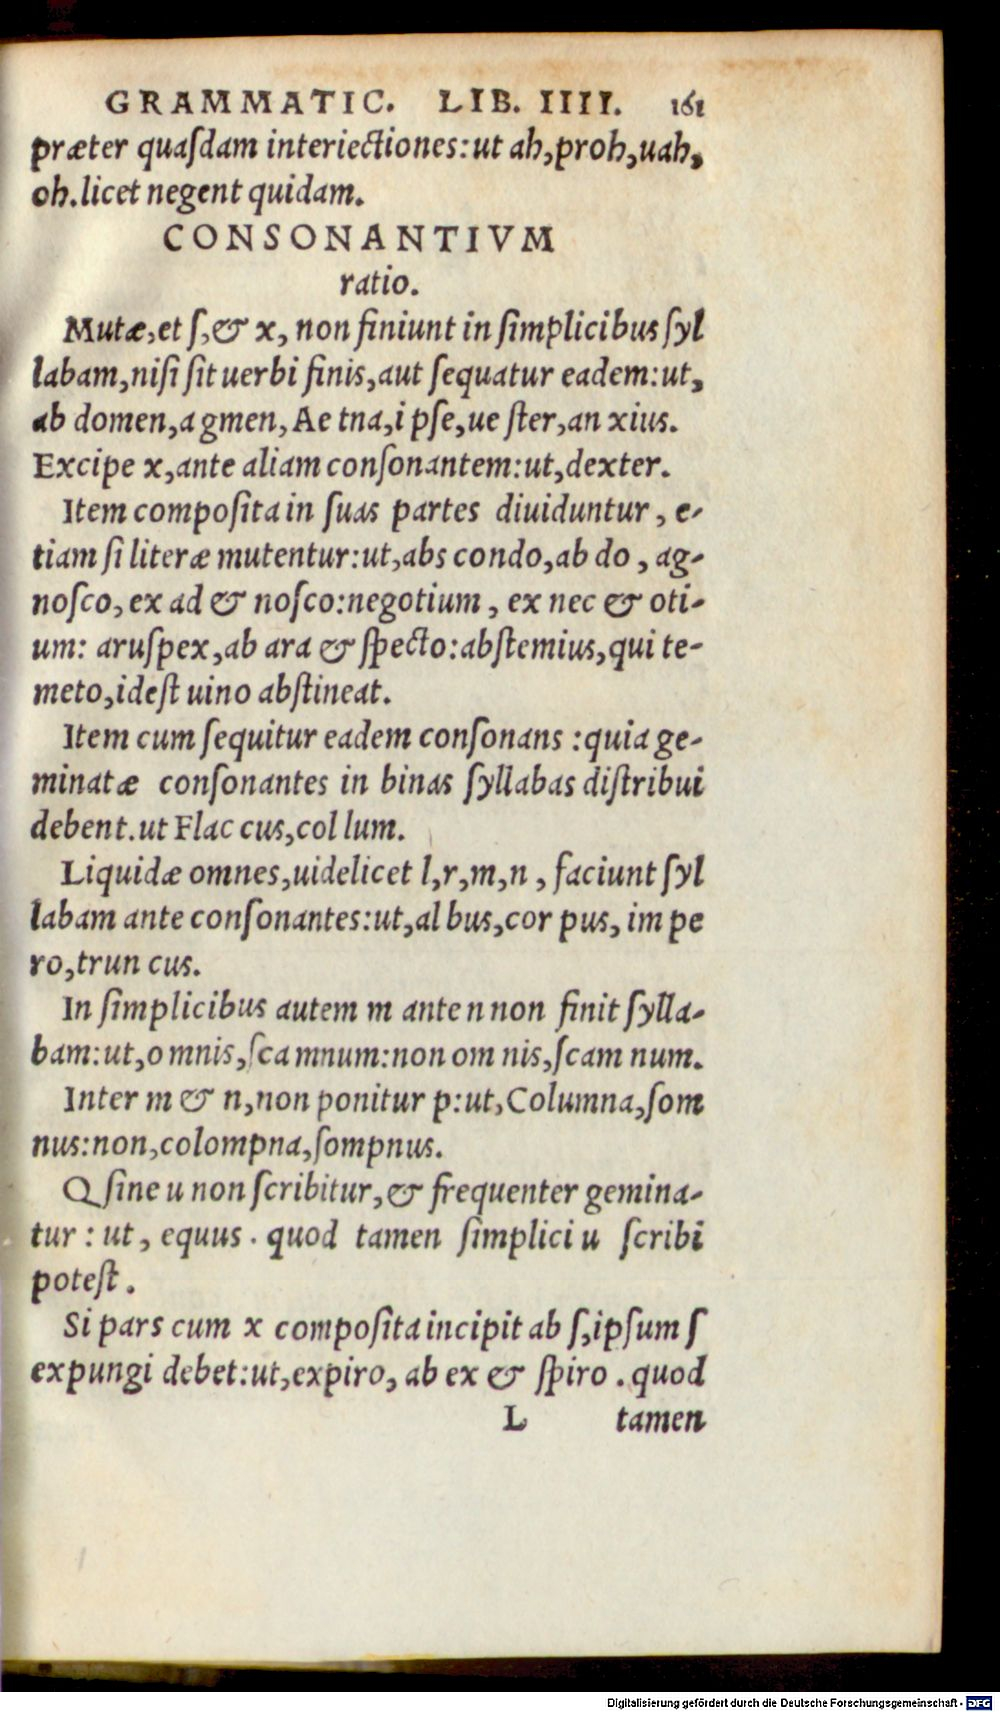 GRAMMATIC. LIB. IIII. 161
præter quaſdam interiectiones:ut ah,proh,uah,
oh.licet negent quidam.
CONSONANTIVM
ratio.
Mutæ,et ſ,& x, non finiunt in ſimplicibus ſyl
labam,niſi ſit uerbi finis,aut ſequatur eadem:ut,
ab domen,a gmen, Ae tna,i pſe,ue ſter,an xius.
Excipe x,ante aliam conſonantem:ut,dexter.
Item compoſita in ſuas partes diuiduntur, e-
tiam ſi literæ mutentur:ut,abs condo,ab do, ag-
noſco, ex ad & noſco:negotium, ex nec & oti-
um: aruſpex,ab ara & ſpecto:abſtemius,qui te-
meto,ideſt uino abſtineat.
Item cum ſequitur eadem conſonans :quia ge-
minatæ conſonantes in binas ſyllabas diſtribui
debent.ut Flac cus,col lum.
Liquidæ omnes,uidelicet l,r,m,n, faciunt ſyl
labam ante conſonantes:ut,al bus,cor pus, im pe
ro,trun cus.
In ſimplicibus autem m ante n non finit ſylla-
bam:ut,o mnis,ſca mnum:non om nis,ſcam num.
Inter m & n,non ponitur p:ut,Columna,ſom
nus:non,colompna,ſompnus.
Q ſine u non ſcribitur,& frequenter gemina-
tur : ut, equus. quod tamen ſimplici u ſcribi
poteſt.
Si pars cum x compoſita incipit ab ſ,ipſum ſ
expungi debet:ut,expiro, ab ex & ſpiro.quod
L tamen
Digitalisierung gefördert durch die Deutsche Forschungsgemeinschaft - DFG